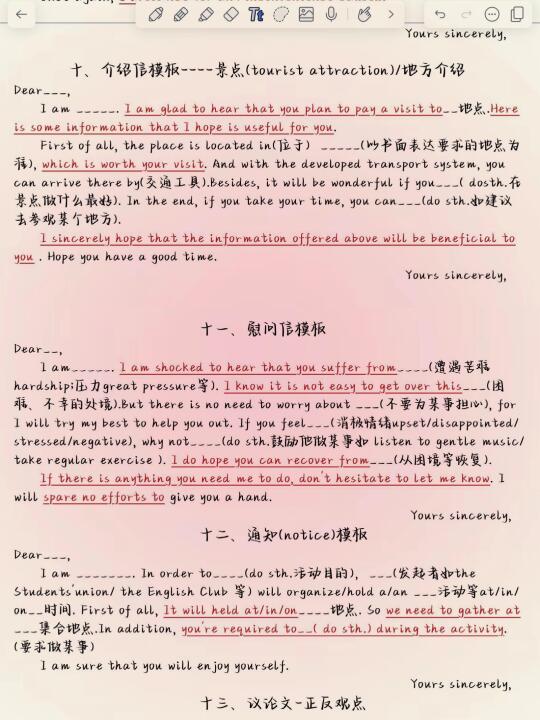 Yours sincerely,
十、介绍信模板----景点(tourist attraction)/地方介绍
Dear___,
I am _____. I am glad to hear that you plan to pay a visit to__地点.Here
is some information that I hope is useful for you.
First of all, the place is located in(位于) _____(以书面表达要求的地点为
准), which is worth your visit. And with the developed transport system, you
can arrive there by(交通工具).Besides, it will be wonderful if you___( dosth.在
景点做什么最好). In the end, if you take your time, you can___(do sth.如建议
去参观某个地方).
I sincerely hope that the information offered above will be beneficial to
you . Hope you have a good time.
Yours sincerely,
十一、慰问信模板
Dear__,
I am______. I am shocked to hear that you suffer from____(遭遇苦难
hardship;压力great pressure等). I know it is not easy to get over this___(困
难、不幸的处境).But there is no need to worry about ___(不要为某事担心), for
I will try my best to help you out. If you feel___(消极情绪upset/disappointed/
stressed/negative), why not____(do sth.鼓励他做某事如 listen to gentle music/
take regular exercise ). I do hope you can recover from___(从困境等恢复).
If there is anything you need me to do, don't hesitate to let me know. I
will spare no efforts to give you a hand.
Yours sincerely,
十二、通知(notice)模板
Dear___,
I am ________. In order to____(do sth.活动目的), ___(发起者如the
Students'union/ the English Club 等) will organize/hold a/an ___活动等at/in/
on__时间. First of all, It will held at/in/on____地点. So we need to gather at
___集合地点.In addition, you're required to__( do sth.) during the activity.
(要求做某事)
I am sure that you will enjoy yourself.
Yours sincerely,
十三、议论文-正反观点